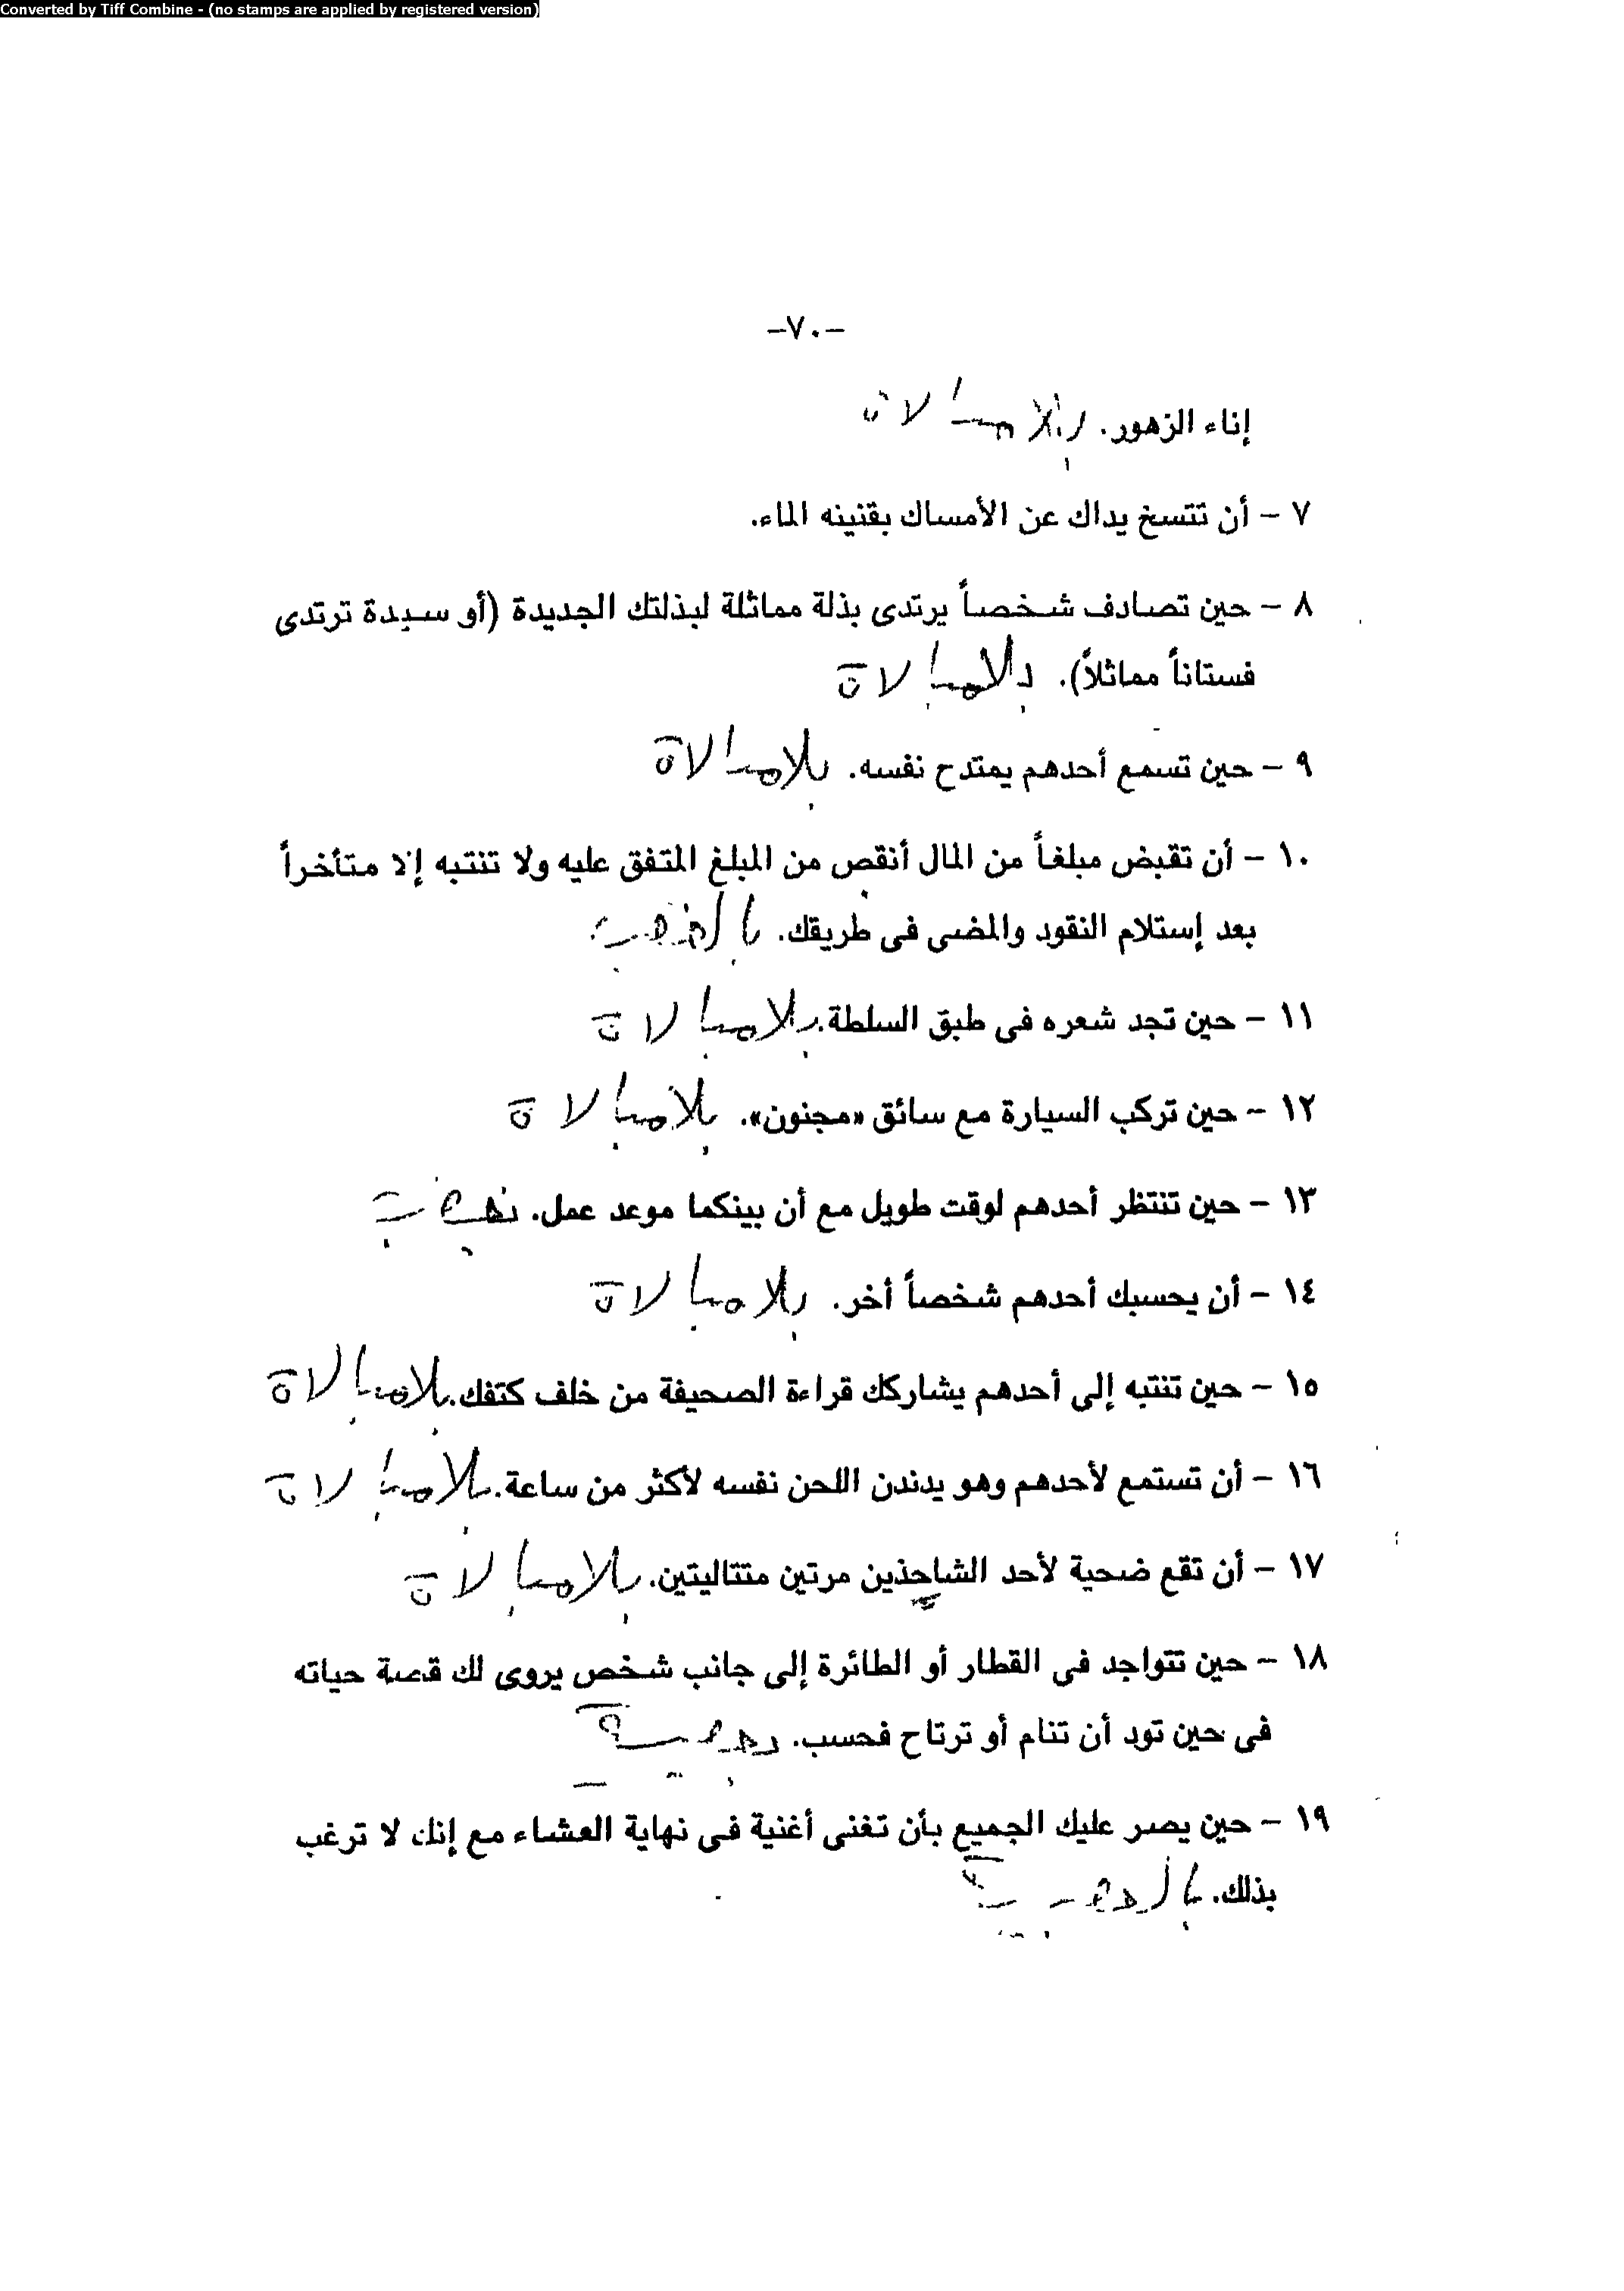 Converted by Tiff Combine - (no stamps are applied by registered version)
-٧٠-
إناء الزهور. بلا مبالاة
٧ - أن تتسخ يداك عن الأمساك بقنينه الماء.
٨ - حين تصادف شخصاً يرتدى بذلة مماثلة لبذلتك الجديدة (أو سيدة ترتدى
فستاناً مماثلاً). بلا مبالاة
٩ - حين تسمع أحدهم يمتدح نفسه. بلا مبالاة
١٠ - أن تقبض مبلغاً من المال أنقص من المبلغ المتفق عليه ولا تنتبه إلا متأخراً
بعد إستلام النقود والمضى فى طريقك. بالغضب
١١ - حين تجد شعره فى طبق السلطة. بلا مبالاة
١٢ - حين تركب السيارة مع سائق «مجنون». بلا مبالاة
١٣ - حين تنتظر أحدهم لوقت طويل مع أن بينكما موعد عمل.
١٤ - أن يحسبك أحدهم شخصاً أخر. بلا مبالاة
١٥ - حين تنتبه إلى أحدهم يشاركك قراءة الصحيفة من خلف كتفك. بلا مبالاة
١٦ - أن تستمع لأحدهم وهو يدندن اللحن نفسه لأكثر من ساعة. بلا مبالاة
١٧ - أن تقع ضحية لأحد الشاحذين مرتين متتاليتين. بلا مبالاة
١٨ - حين تتواجد فى القطار أو الطائرة إلى جانب شخص يروى لك قصة حياته
فى حين تود أن تنام أو ترتاح فحسب.
١٩ - حين يصر عليك الجميع بأن تغنى أغنية فى نهاية العشاء مع إنك لا ترغب
بذلك.